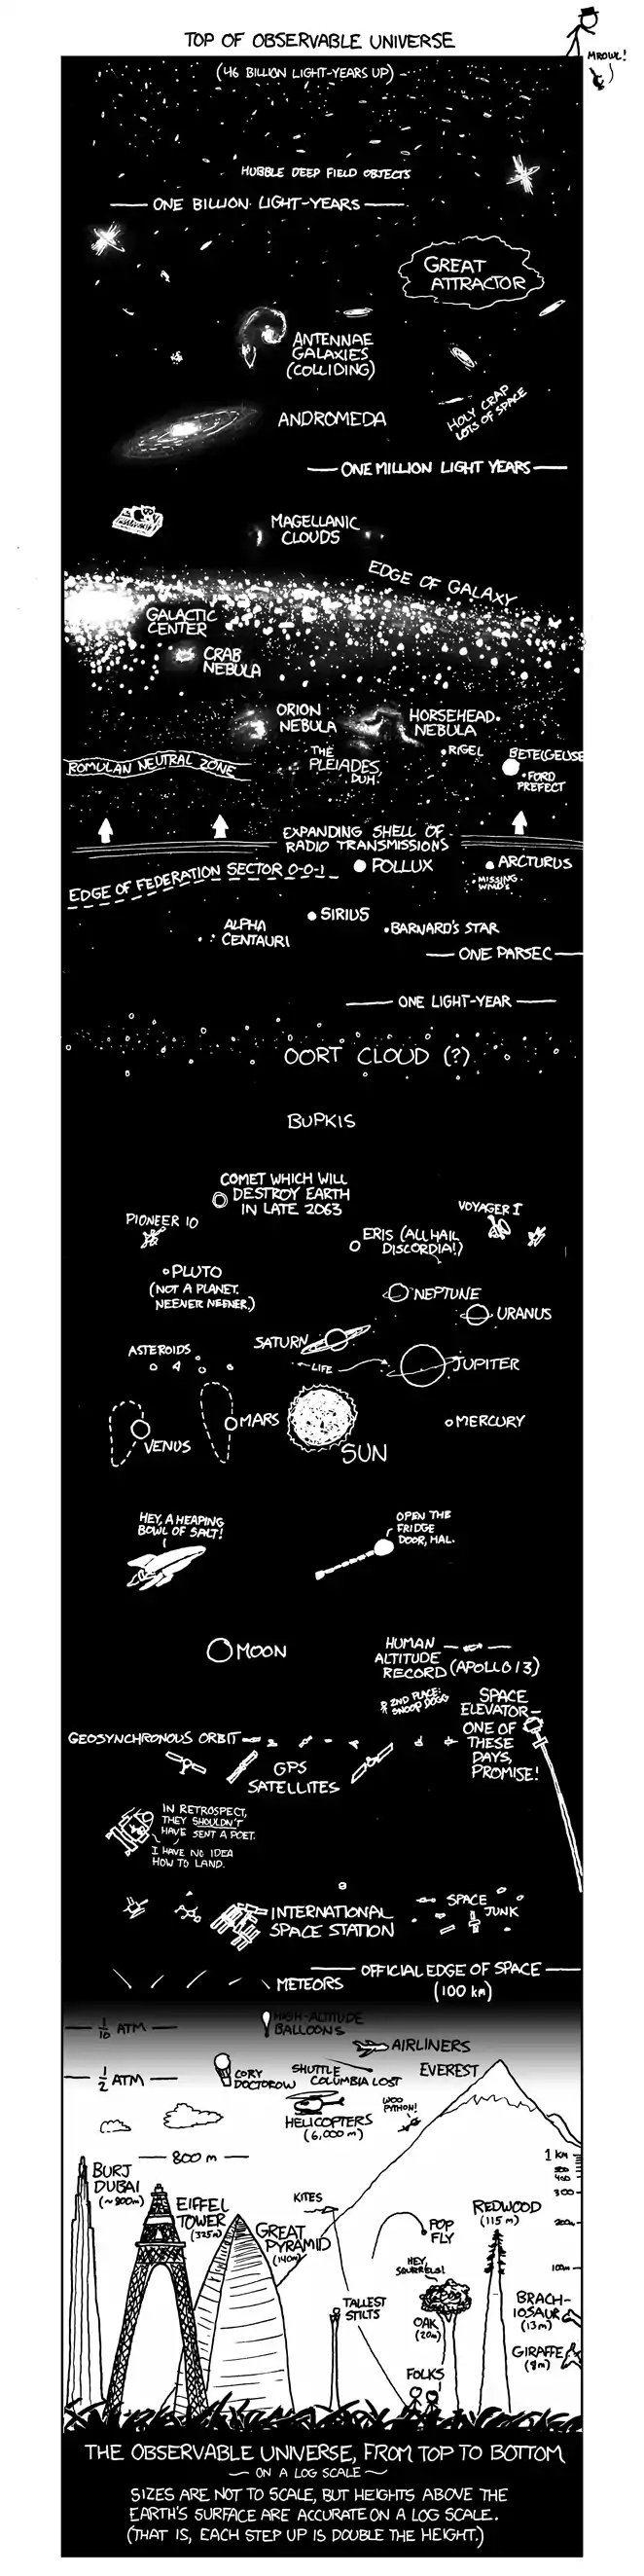 TOP OF OBSERVABLE UNIVERSE
MROWL!
(46 BILLION LIGHT-YEARS UP)
HUBBLE DEEP FIELD OBJECTS
ONE BILLION LIGHT-YEARS
GREAT
ATTRACTOR
ANTENNAE
GALAXIES
(COLLIDING)
HOLY CRAP
LOTS OF SPACE
ANDROMEDA
ONE MILLION LIGHT YEARS
MAGELLANIC
CLOUDS
EDGE OF GALAXY
GALACTIC
CENTER
CRAB
NEBULA
ORION
NEBULA
HORSEHEAD
NEBULA
RIGEL
BETELGEUSE
THE
PLEIADES,
DUH.
ROMULAN NEUTRAL ZONE
FORD
PREFECT
EXPANDING SHELL OF
RADIO TRANSMISSIONS
POLLUX
ARCTURUS
EDGE OF FEDERATION SECTOR 0-0-1
MISSING
WMDS
SIRIUS
ALPHA
CENTAURI
BARNARD'S STAR
ONE PARSEC
ONE LIGHT-YEAR
OORT CLOUD (?)
BUPKIS
COMET WHICH WILL
DESTROY EARTH
IN LATE 2063
PIONEER 10
VOYAGER I
ERIS (ALL HAIL
DISCORDIA!)
PLUTO
(NOT A PLANET.
NEENER NEENER.)
NEPTUNE
URANUS
SATURN
ASTEROIDS
LIFE
JUPITER
VENUS
MARS
SUN
MERCURY
HEY, A HEAPING
BOWL OF SALT!
OPEN THE
FRIDGE
DOOR, HAL.
MOON
HUMAN
ALTITUDE
RECORD (APOLLO 13)
2ND PLACE:
SNOOP DOGG
SPACE
ELEVATOR—
ONE OF
THESE
DAYS,
PROMISE!
GEOSYNCHRONOUS ORBIT
GPS
SATELLITES
IN RETROSPECT,
THEY SHOULDN'T
HAVE SENT A POET.
I HAVE NO IDEA
HOW TO LAND.
INTERNATIONAL
SPACE STATION
SPACE
JUNK
OFFICIAL EDGE OF SPACE
(100 km)
METEORS
1/10 ATM
HIGH-ALTITUDE
BALLOONS
AIRLINERS
1/2 ATM
CORY
DOCTOROW
SHUTTLE
COLUMBIA LOST
EVEREST
HELICOPTERS
(6,000 m)
WOO
PYTHON!
800 m
BURJ
DUBAI
(~800m)
EIFFEL
TOWER
(325m)
GREAT
PYRAMID
(140m)
KITES
POP
FLY
REDWOOD
(115 m)
1 KM
500
400
300
200m
100m
HEY,
SQUIRRELS!
TALLEST
STILTS
OAK
(20m)
BRACH-
IOSAUR
(13m)
GIRAFFE
(8m)
FOLKS
THE OBSERVABLE UNIVERSE, FROM TOP TO BOTTOM
~ ON A LOG SCALE ~
SIZES ARE NOT TO SCALE, BUT HEIGHTS ABOVE THE
EARTH'S SURFACE ARE ACCURATE ON A LOG SCALE.
(THAT IS, EACH STEP UP IS DOUBLE THE HEIGHT.)